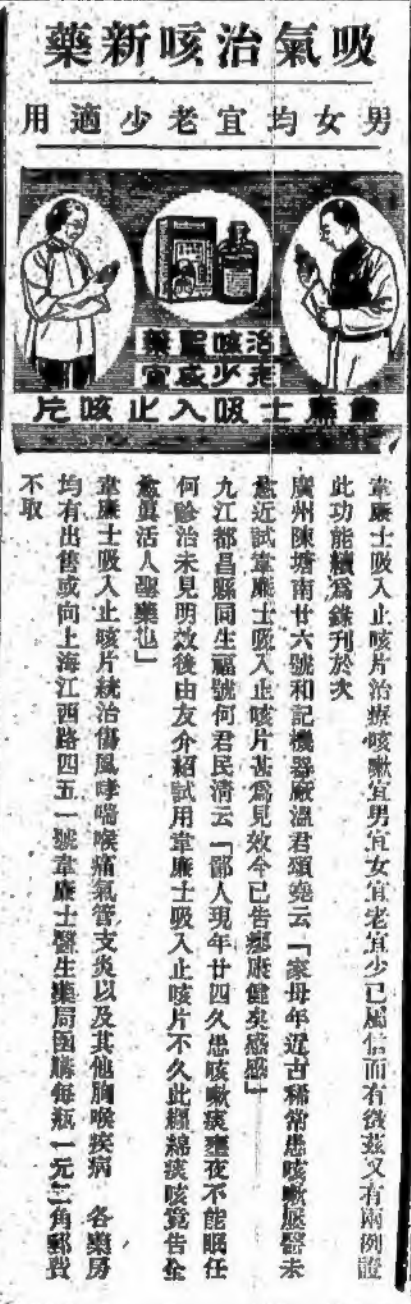 吸氣治咳新藥
男女均宜老少適用
治咳聖藥
老少咸宜
韋廉士吸入止咳片
韋廉士吸入止咳片治療咳嗽宜男宜女宜老宜少已屬信而有徵茲又有兩例證
此功能續為錄刊於次
廣州陳塘南廿六號和記機器廠溫君頌堯云「家母年近古稀常患咳嗽屢醫未
愈近試韋廉士吸入止咳片甚為見效今已告痊康健矣感感」
九江都昌縣同生福號何君民清云「鄙人現年廿四久患咳嗽痰壅夜不能眠任
何診治未見明效後由友介紹試用韋廉士吸入止咳片不久此纏綿痰咳竟告全
愈眞活人聖藥也」
韋廉士吸入止咳片統治傷風哮喘喉痛氣管支炎以及其他胸喉疾病 各藥房
均有出售或向上海江西路四五一號韋廉士醫生藥局函購每瓶一元二角郵費
不取